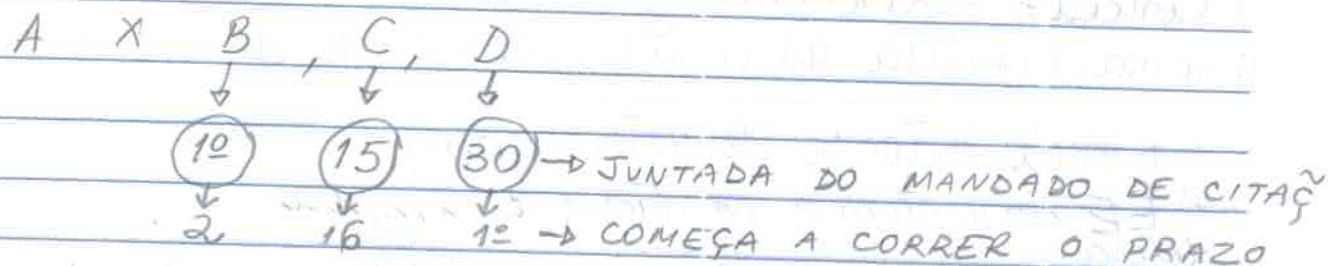 A X B, C, D
1º 15 30 → JUNTADA DO MANDADO DE CITAÇ̃
2 16 1º → COMEÇA A CORRER O PRAZO